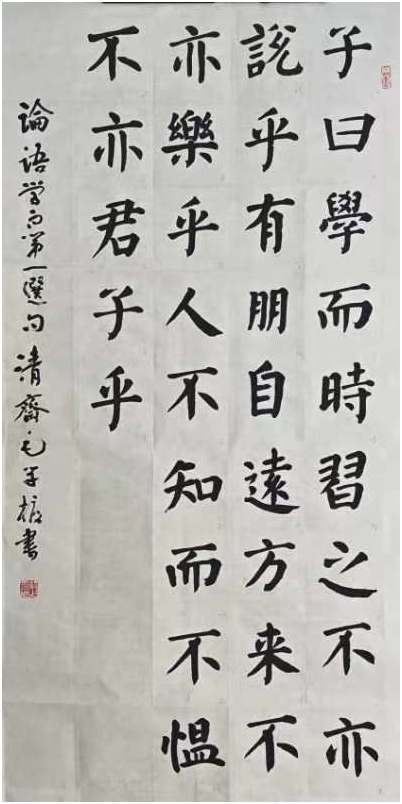 子曰學而時習之不亦
說乎有朋自遠方来不
亦樂乎人不知而不愠
不亦君子乎
論語学而第一選句清齋書